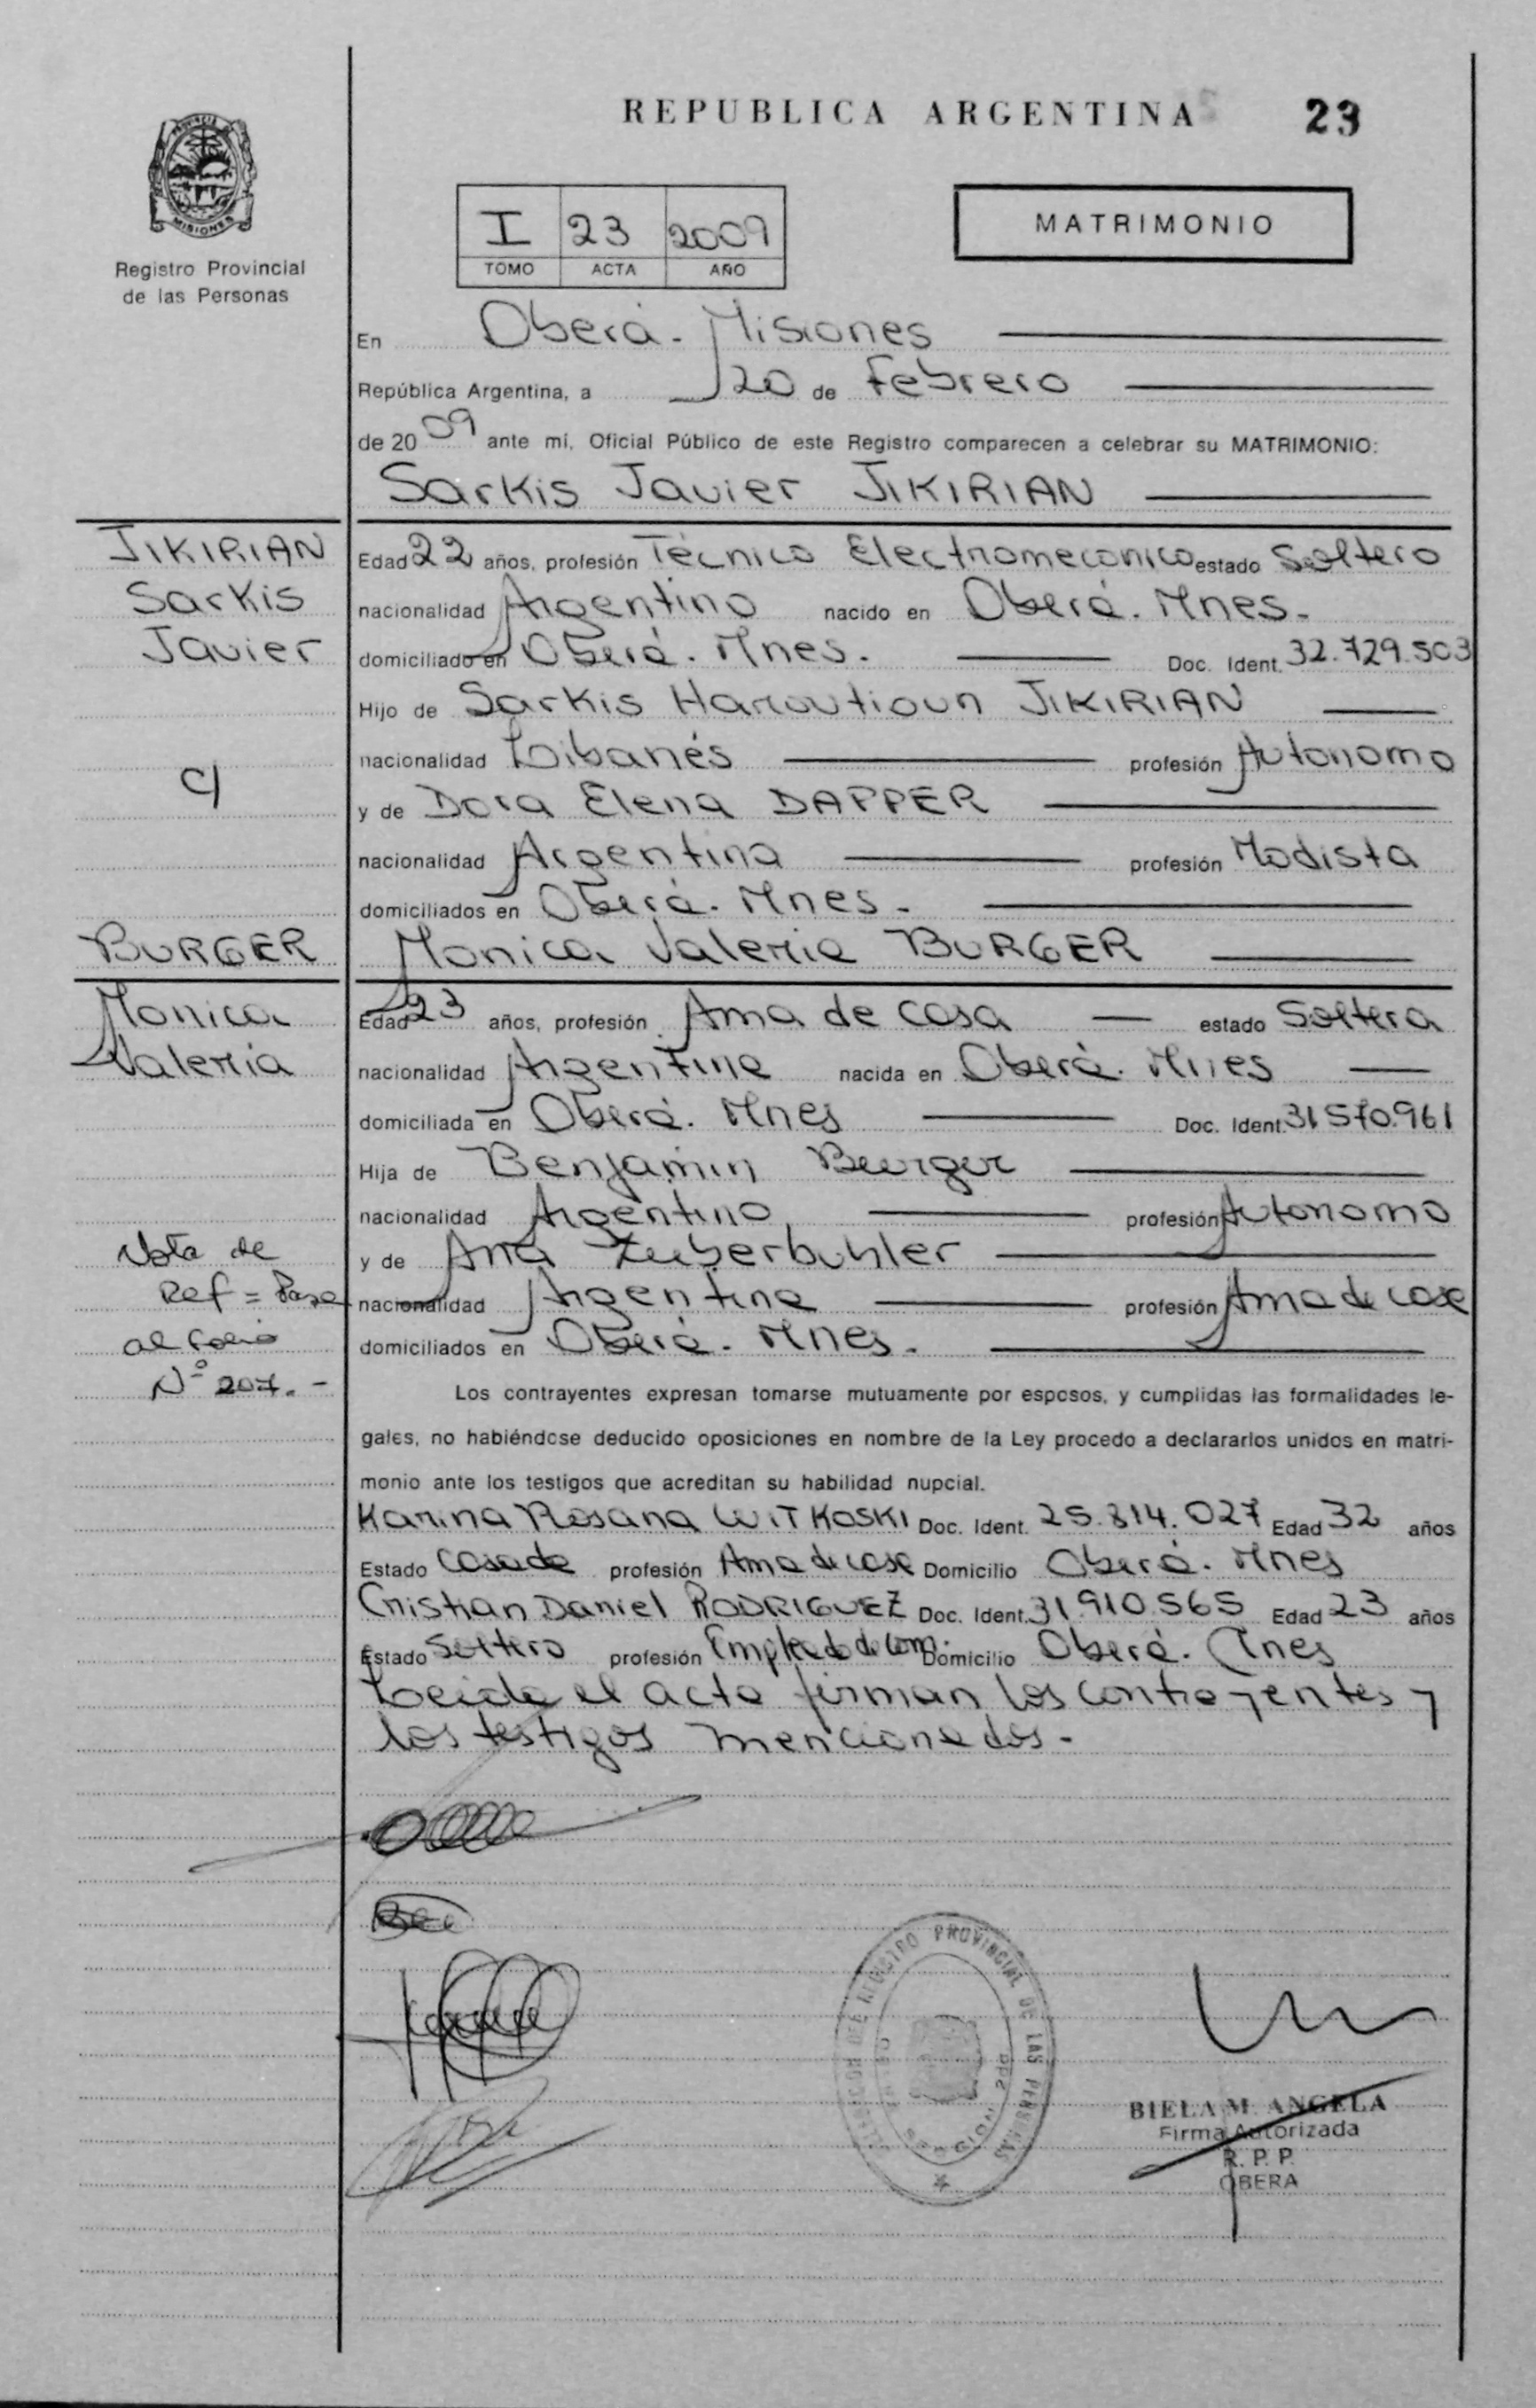 REPUBLICA ARGENTINA 23
PROVINCIA DE
MISIONES
Registro Provincial
de las Personas
I 23 2009
TOMO ACTA AÑO
MATRIMONIO
En Oberá - Misiones
República Argentina, a 20 de Febrero
de 2009 ante mi, Oficial Público de este Registro comparecen a celebrar su MATRIMONIO:
Sarkis Javier JIKIRIAN
JIKIRIAN
Sarkis
Javier
c/
BURGER
Monica
Valeria
Nota de
Ref = Pase
al folio
Nº 207. -
Edad 22 años, profesión Técnico Electromecanico estado Soltero
nacionalidad Argentino nacido en Oberá. Mnes.
domiciliado en Oberá. Mnes. Doc. Ident. 32.729.503
Hijo de Sarkis Haroutioun JIKIRIAN
nacionalidad Libanés profesión Autonomo
y de Dora Elena DAPPER
nacionalidad Argentina profesión Modista
domiciliados en Oberá. Mnes.
Monica Valeria BURGER
Edad 23 años, profesión Ama de casa estado Soltera
nacionalidad Argentina nacida en Oberá. Mnes
domiciliada en Oberá. Mnes Doc. Ident. 31.570.961
Hija de Benjamin Burger
nacionalidad Argentino profesión Autonomo
y de Ana Zuberbuhler
nacionalidad Argentina profesión Ama de casa
domiciliados en Oberá. Mnes.
Los contrayentes expresan tomarse mutuamente por esposos, y cumplidas las formalidades le-
gales, no habiéndose deducido oposiciones en nombre de la Ley procedo a declararlos unidos en matri-
monio ante los testigos que acreditan su habilidad nupcial.
Karina Rosana WITKOSKI Doc. Ident. 25.814.027 Edad 32 años
Estado Casada profesión Ama de casa Domicilio Oberá. Mnes
Cristian Daniel RODRIGUEZ Doc. Ident. 31.910.565 Edad 23 años
Estado Soltero profesión Empleado de com. Domicilio Oberá. Mnes
Leida el acta firman los contrayentes y
los testigos mencionados.
REGISTRO PROVINCIAL DE LAS PERSONAS
BIELA M. ANGELA
Firma Autorizada
R. P. P.
OBERA